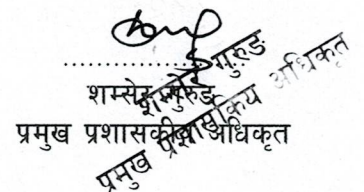 ....................
शम्सेर गुरुङ
प्रमुख प्रशासकीय अधिकृत
शम्सेर गुरुङ
प्रमुख प्रशासकिय अधिकृत